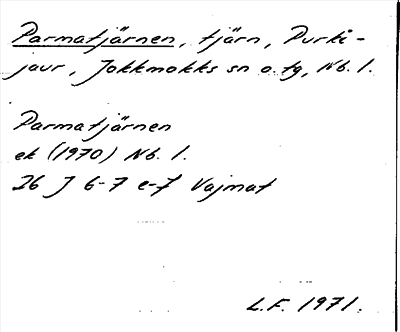 Parmatjärnen, tjärn, Purki-
jaur, Jokkmokks sn o. tg, Nb. l.
Parmatjärnen
ek (1970) Nb. l.
26 J 6-7 e-f Vajmat
L.F. 1971.